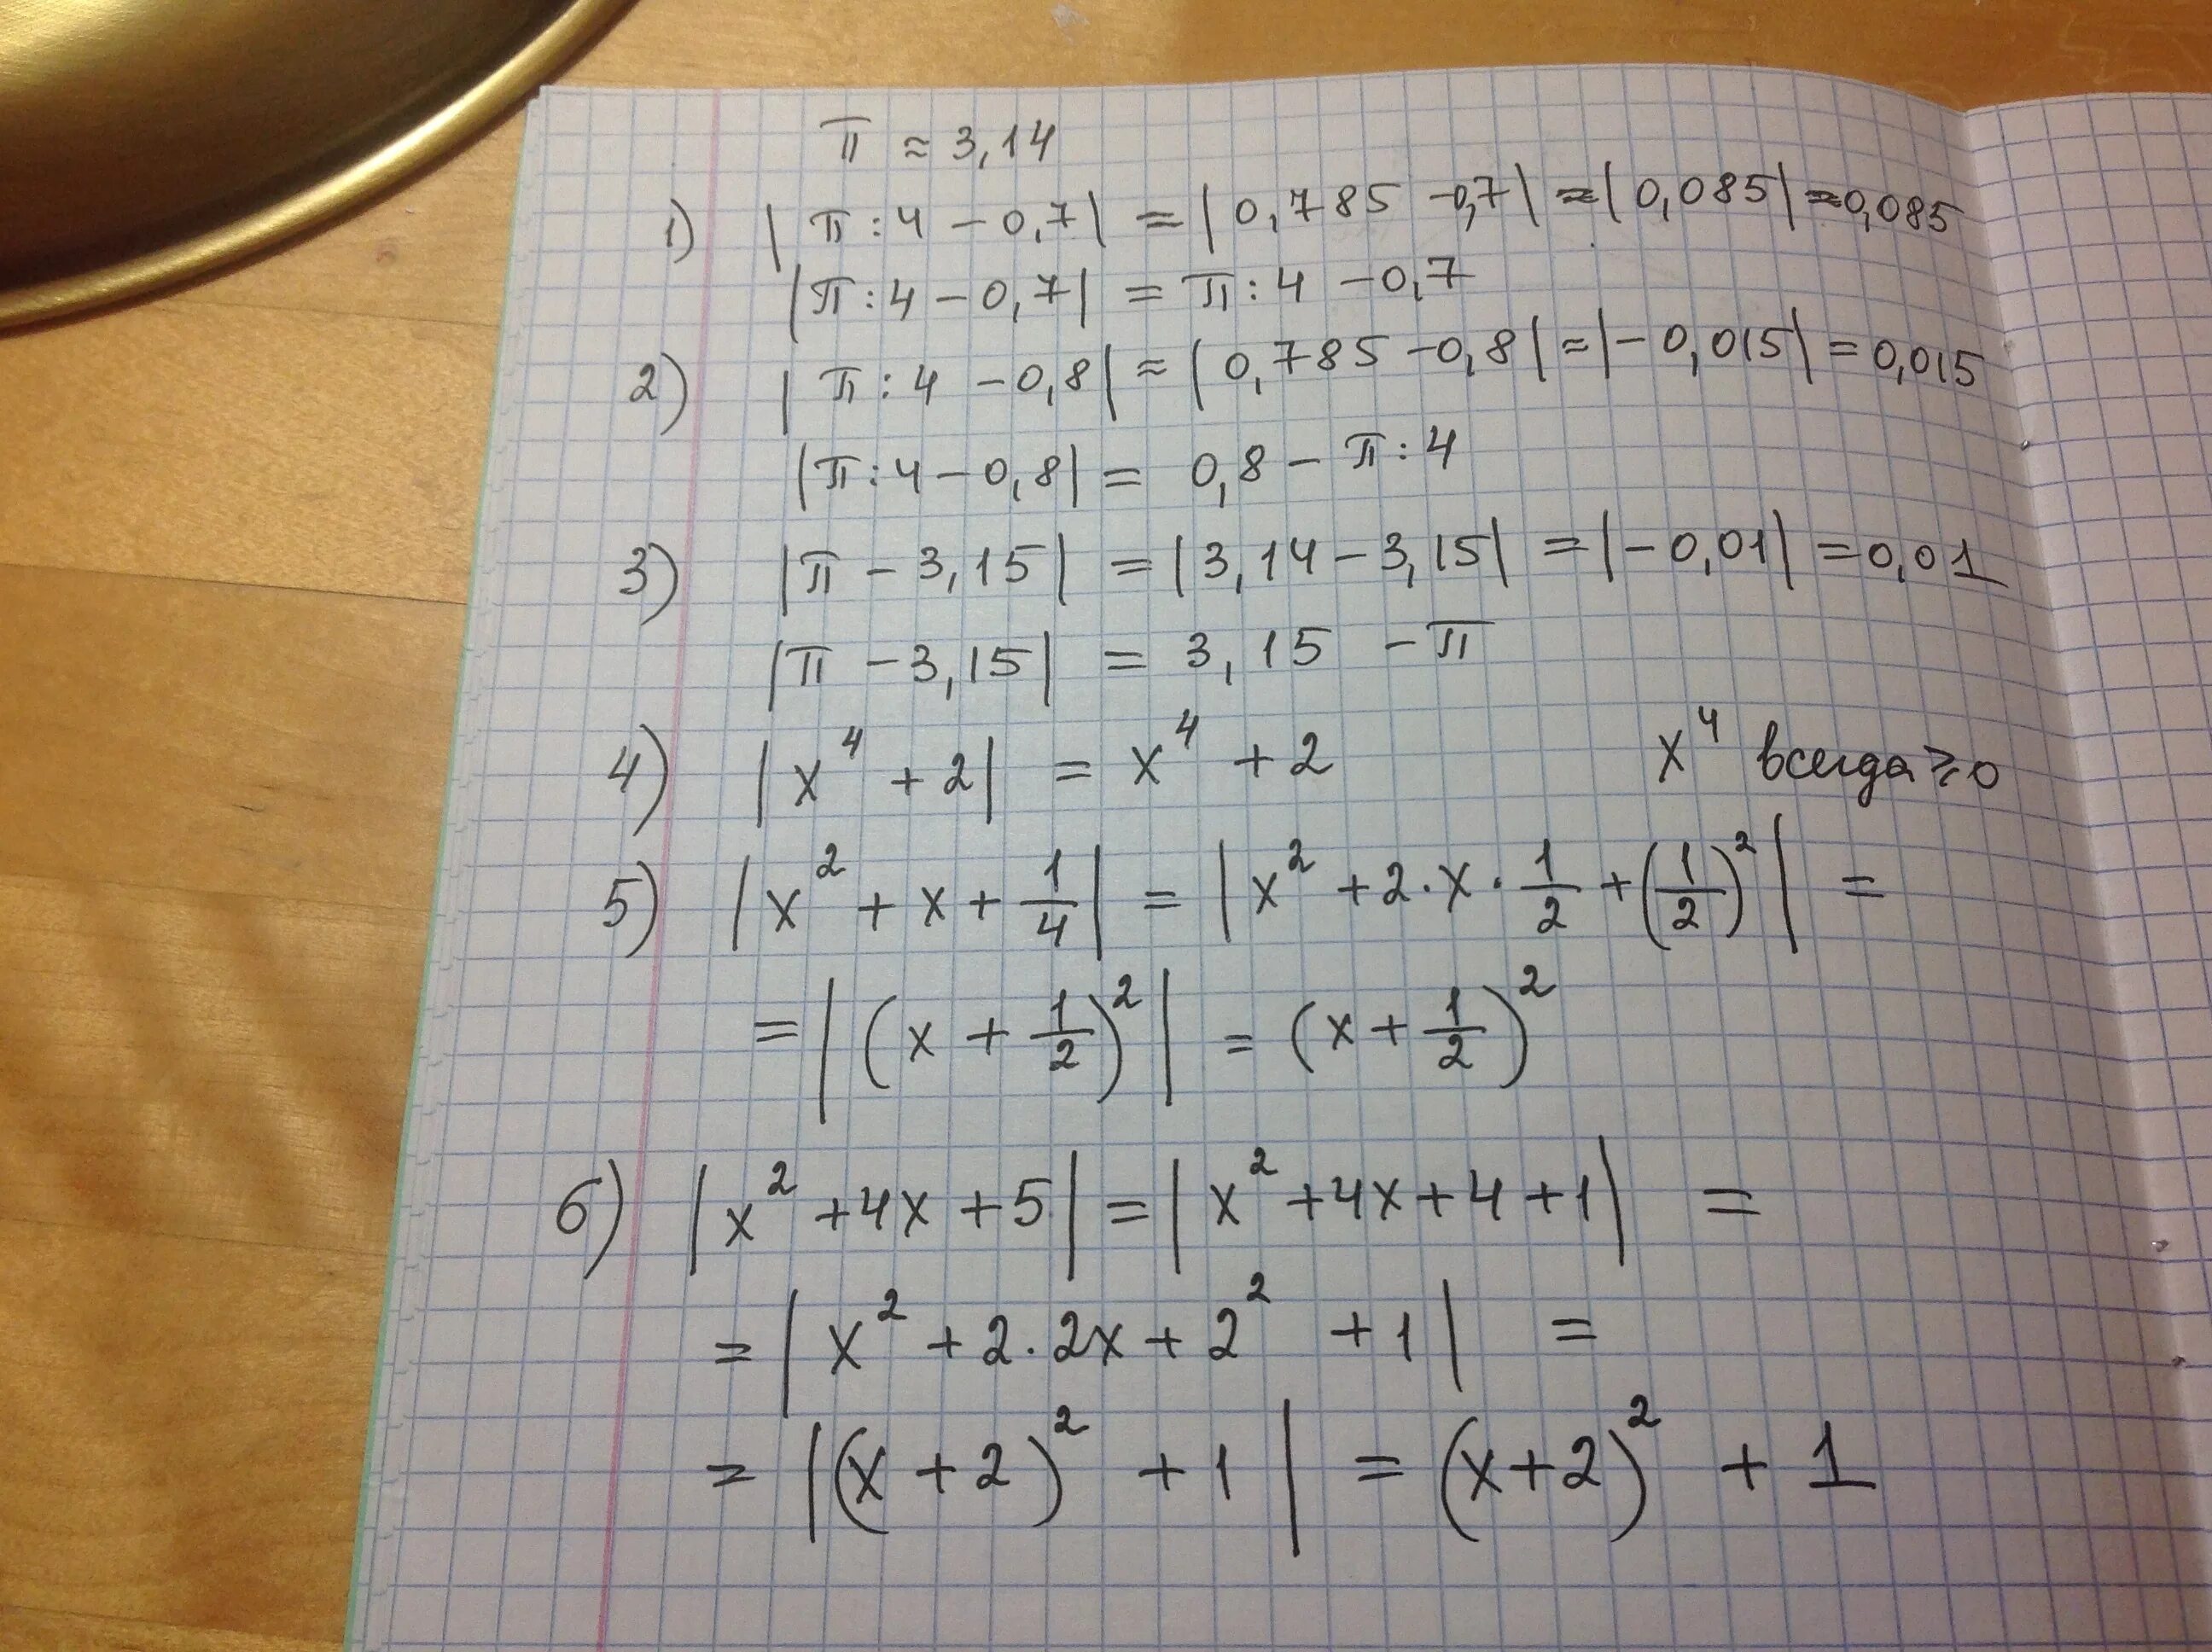 π ≈ 3,14
1) |π:4 - 0,7| = |0,785 - 0,7| ≈ |0,085| ≈ 0,085
|π:4 - 0,7| = π:4 - 0,7
2) |π:4 - 0,8| ≈ |0,785 - 0,8| ≈ |-0,015| = 0,015
|π:4 - 0,8| = 0,8 - π:4
3) |π - 3,15| = |3,14 - 3,15| = |-0,01| = 0,01
|π - 3,15| = 3,15 - π
4) |x⁴ + 2| = x⁴ + 2 x⁴ всегда ≥ 0
5) |x² + x + 1/4| = |x² + 2·x·1/2 + (1/2)²| =
= |(x + 1/2)²| = (x + 1/2)²
6) |x² + 4x + 5| = |x² + 4x + 4 + 1| =
= |x² + 2·2x + 2² + 1| =
= |(x + 2)² + 1| = (x + 2)² + 1